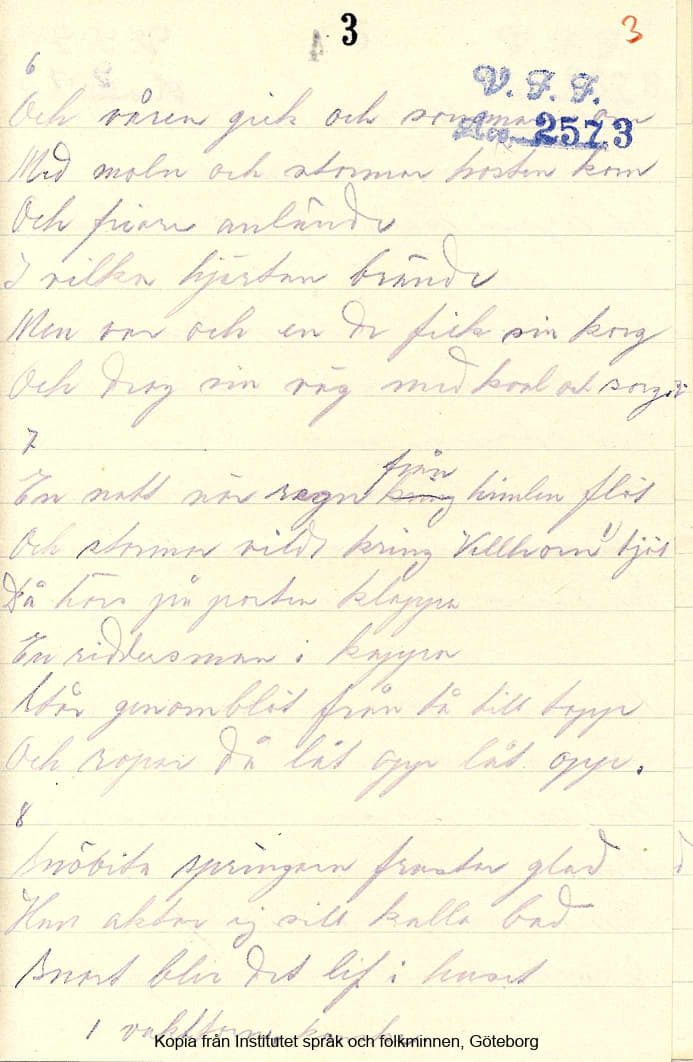 3
3
6
V. F. F.
Och våren gick och sommar
2573
Med moln och stormar hösten kom
Och friare anlände
I vilka hjärtan brände
Men var och en de fick sin korg
Och drog sin väg med kval och sorg
7
från
En natt när regn kring himlen flöt
Och stormar vildt kring tjöt
Då hörs på porten klappa
En riddersman i kappa
Står genomblöt från tå till topp
Och ropar då låt opp låt opp.
8
Snöhita springarn frustar glad
Han aktar ej sitt kalla bad
Snart blir det lif i huset
I
Kopia från Institutet språk och folkminnen, Göteborg